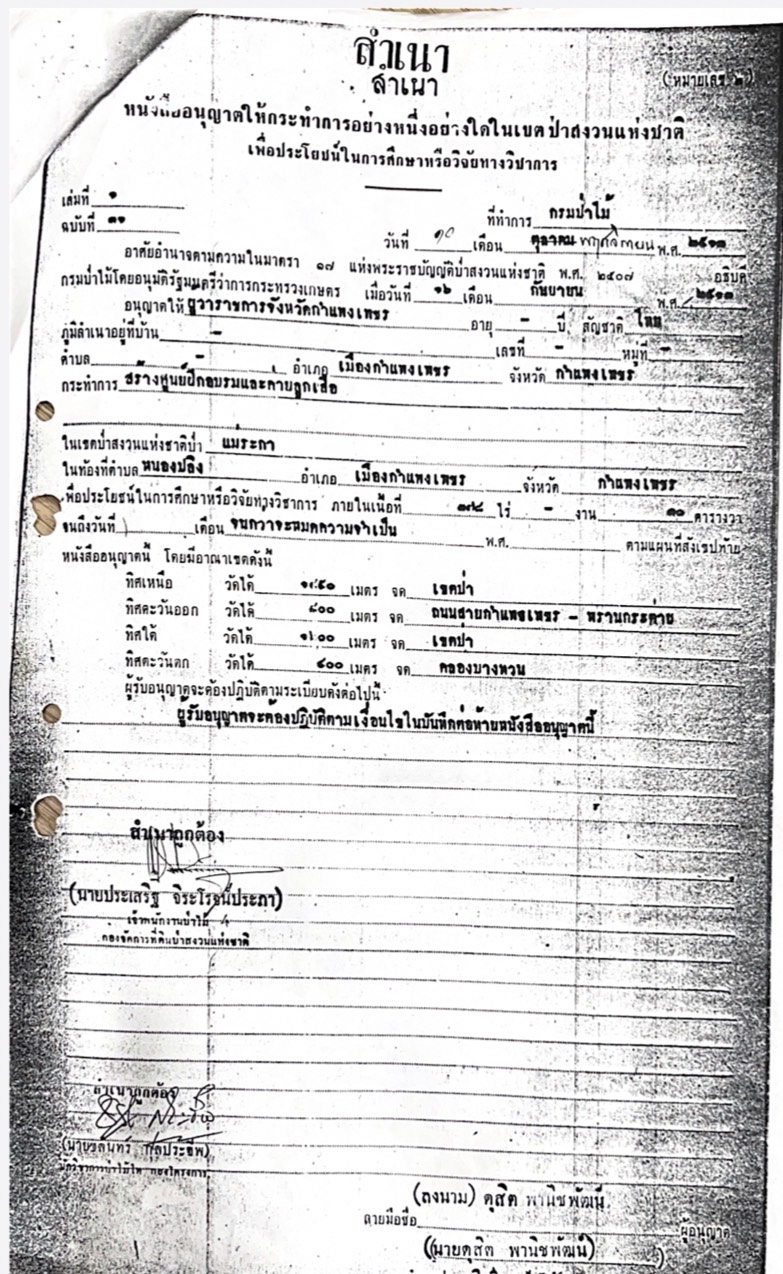 สำเนา
สำเนา
(หมายเลข ๒)
หนังสืออนุญาตให้กระทำการอย่างหนึ่งอย่างใดในเขตป่าสงวนแห่งชาติ
เพื่อประโยชน์ในการศึกษาหรือวิจัยทางวิชาการ
เล่มที่ ๑
ฉบับที่ ๓๑ ที่ทำการ กรมป่าไม้
วันที่ ๑๐ เดือน ตุลาคม พฤศจิกายน พ.ศ. ๒๕๑๓
อาศัยอำนาจตามความในมาตรา ๑๗ แห่งพระราชบัญญัติป่าสงวนแห่งชาติ พ.ศ. ๒๕๐๗ อธิบดี
กรมป่าไม้โดยอนุมัติรัฐมนตรีว่าการกระทรวงเกษตร เมื่อวันที่ ๑๖ เดือน กันยายน พ.ศ. ๒๕๑๓
อนุญาตให้ ผู้ว่าราชการจังหวัดกำแพงเพชร อายุ - ปี สัญชาติ ไทย
ภูมิลำเนาอยู่ที่บ้าน - เลขที่ - หมู่ที่ -
ตำบล - อำเภอ เมืองกำแพงเพชร จังหวัด กำแพงเพชร
กระทำการ สร้างศูนย์ฝึกอบรมและค่ายลูกเสือ
ในเขตป่าสงวนแห่งชาติป่า แม่ระกา
ในท้องที่ตำบล หนองปลิง อำเภอ เมืองกำแพงเพชร จังหวัด กำแพงเพชร
เพื่อประโยชน์ในการศึกษาหรือวิจัยทางวิชาการ ภายในเนื้อที่ ไร่ - งาน ๓๐ ตารางวา
จนถึงวันที่ เดือน จนกว่าจะหมดความจำเป็น พ.ศ. ตามแผนที่สังเขปท้าย
หนังสืออนุญาตนี้ โดยมีอาณาเขตดังนี้
ทิศเหนือ วัดได้ เมตร จด เขตป่า
ทิศตะวันออก วัดได้ ๘๐๐ เมตร จด ถนนสายกำแพงเพชร - พรานกระต่าย
ทิศใต้ วัดได้ เมตร จด เขตป่า
ทิศตะวันตก วัดได้ ๔๐๐ เมตร จด คลองบางทวน
ผู้รับอนุญาตจะต้องปฏิบัติตามระเบียบดังต่อไปนี้
ผู้รับอนุญาตจะต้องปฏิบัติตามเงื่อนไขในบันทึกต่อท้ายหนังสืออนุญาตนี้
สำเนาถูกต้อง
(นายประเสริฐ จิระโรจน์ประภา)
เจ้าพนักงานป่าไม้ 4
กองจัดการที่ดินป่าสงวนแห่งชาติ
สำเนาถูกต้อง
(ลงนาม) ดุสิต พานิชพัฒน์
ลายมือชื่อ ผู้อนุญาต
(นายดุสิต พานิชพัฒน์)